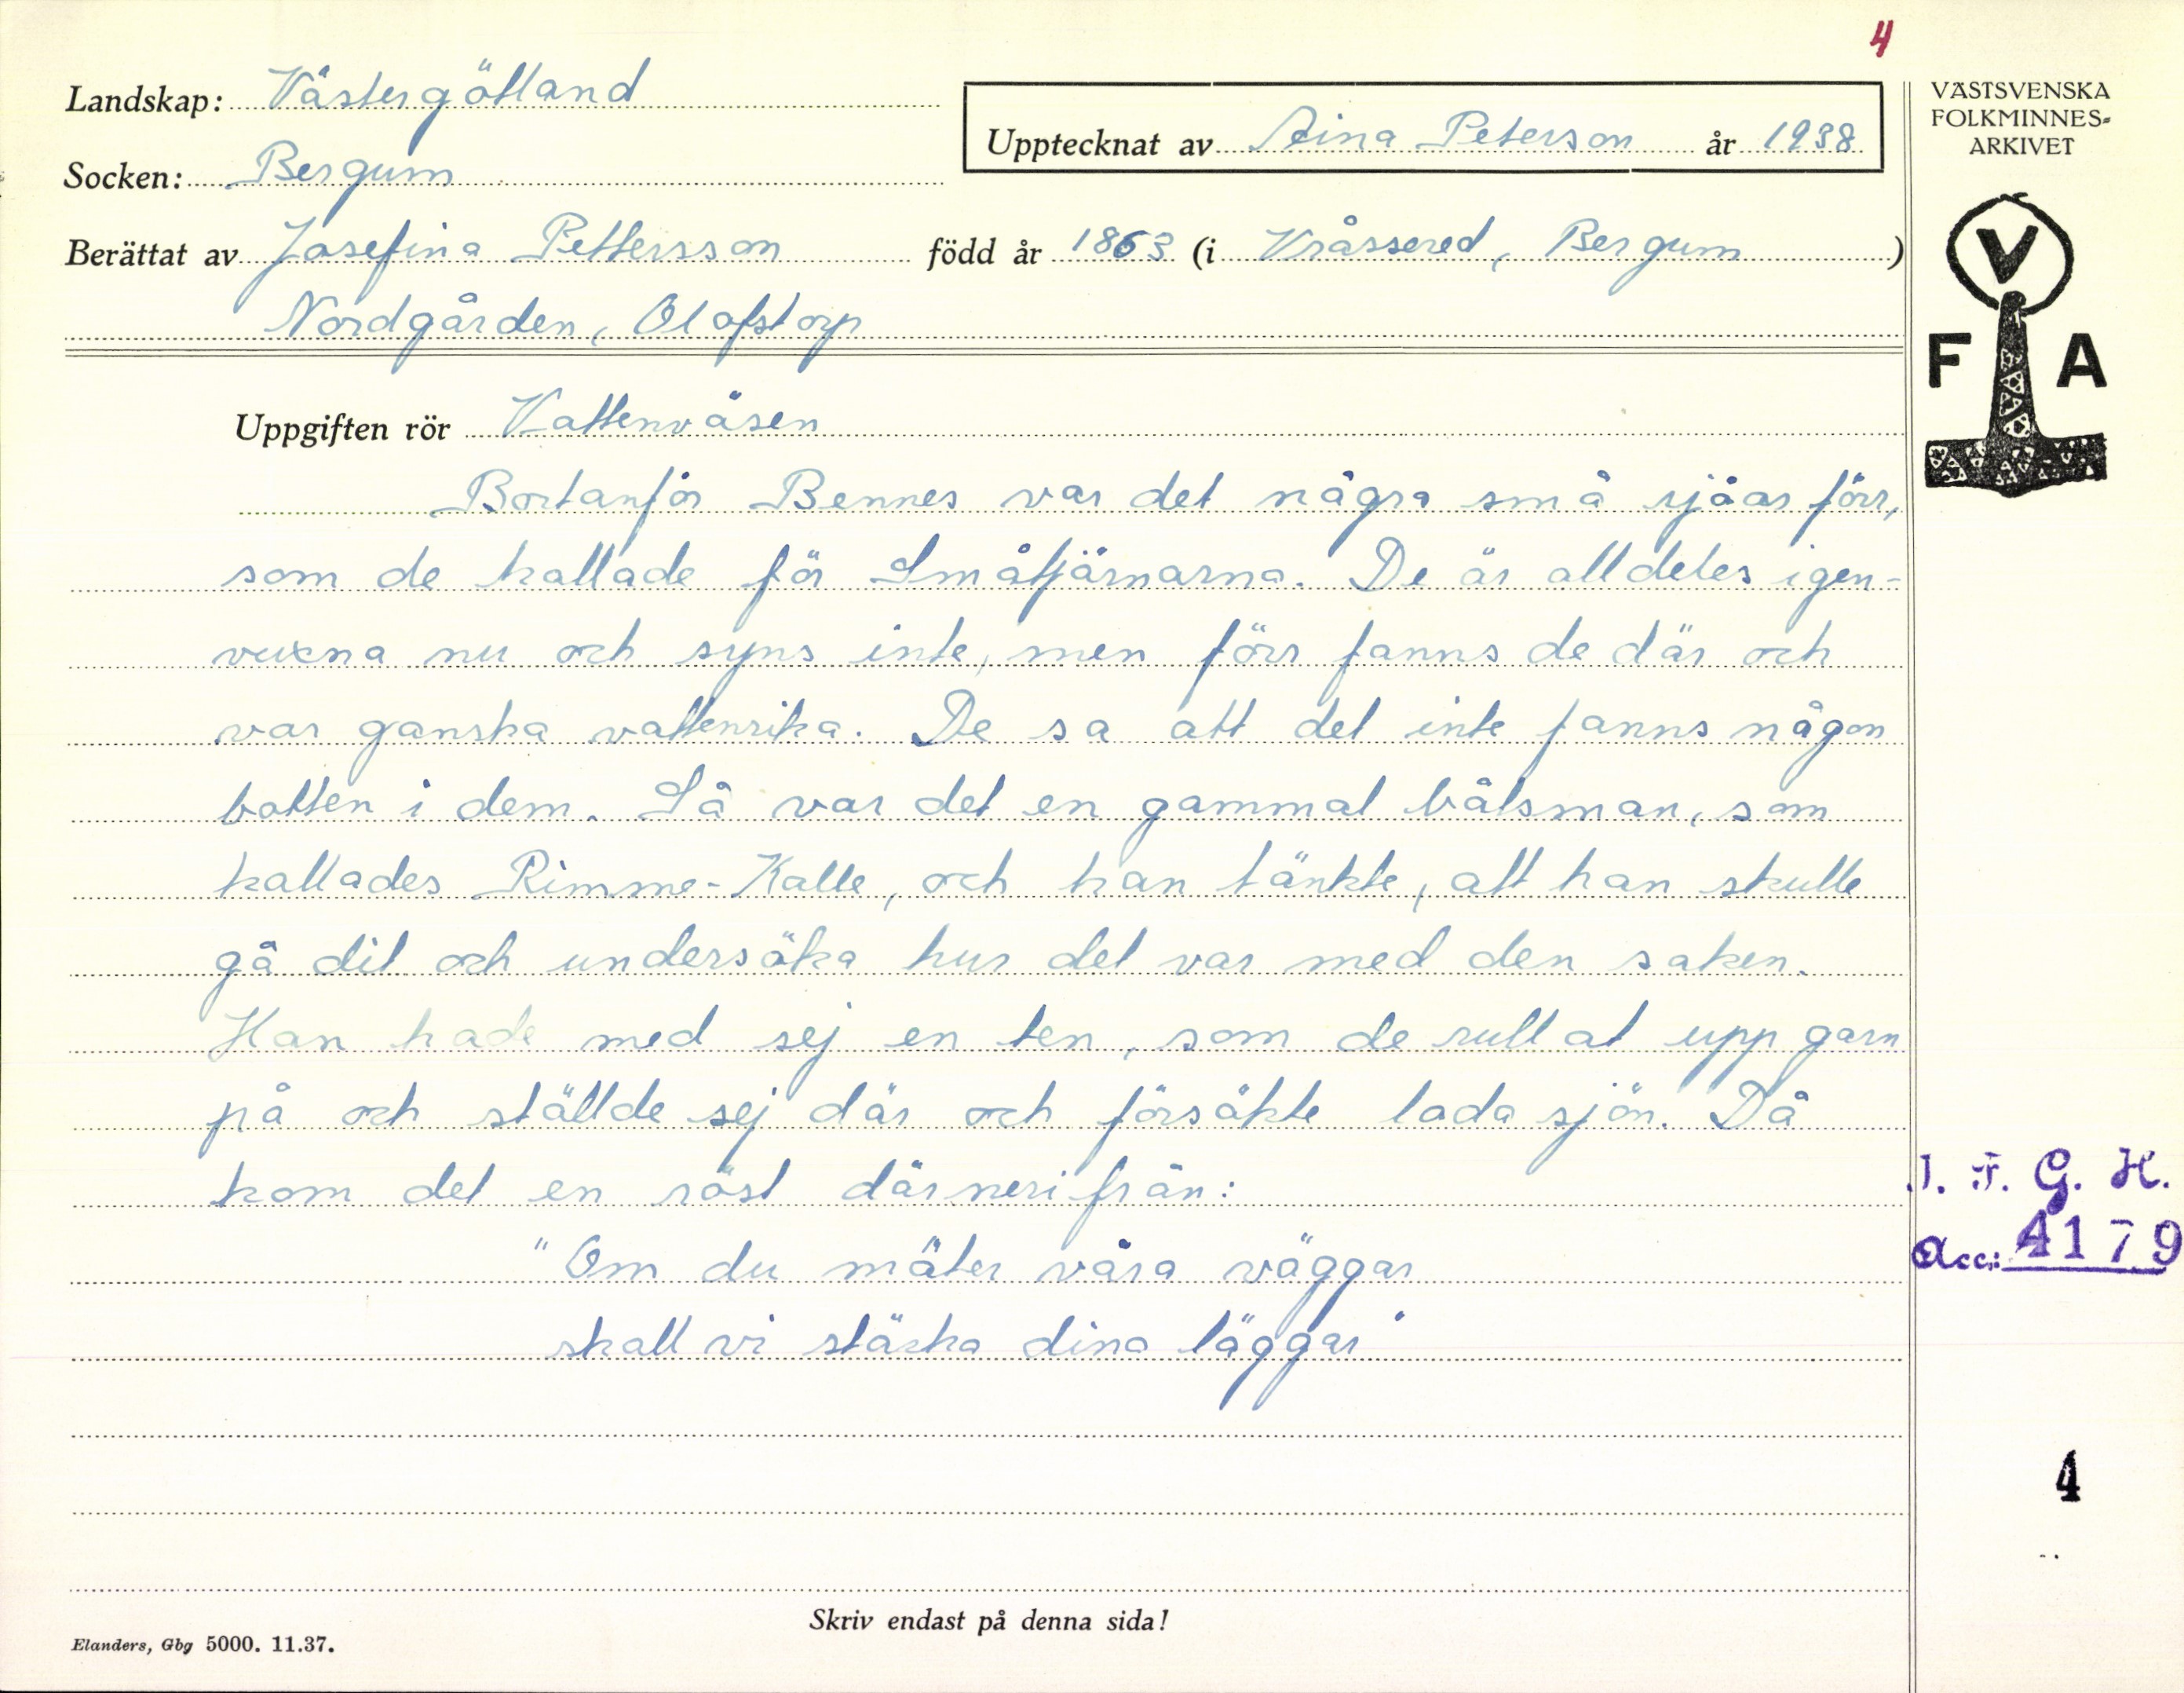 4
Landskap: Västergötland
Upptecknat av Aina Peterson år 1938
Socken: Bergum
Berättat av Josefina Pettersson född år 1863 (i Kråssered, Bergum)
Nordgården, Olofstorp
VÄSTSVENSKA
FOLKMINNES-
ARKIVET
V
F A
Uppgiften rör Vattenväsen
Bortanför Bennes var det några små sjöar förr,
som de kallade för Småtjärnarna. De är alldeles igen-
vuxna nu och syns inte, men förr fanns de där och
var ganska vattenrika. De sa att det inte fanns någon
botten i dem. Så var det en gammal båtsman, som
kallades Rimme-Kalle, och han tänkte, att han skulle
gå dit och undersöka hur det var med den saken.
Han hade med sej en ten, som de rullat upp garn
på och ställde sej där och försökte loda sjön. Då
kom det en röst därnerifrån:
"Om du mäter våra väggar
skall vi stäcka dina läggar"
I. F. G. H.
Acc: 4179
4
Skriv endast på denna sida!
Elanders, Gbg 5000. 11.37.